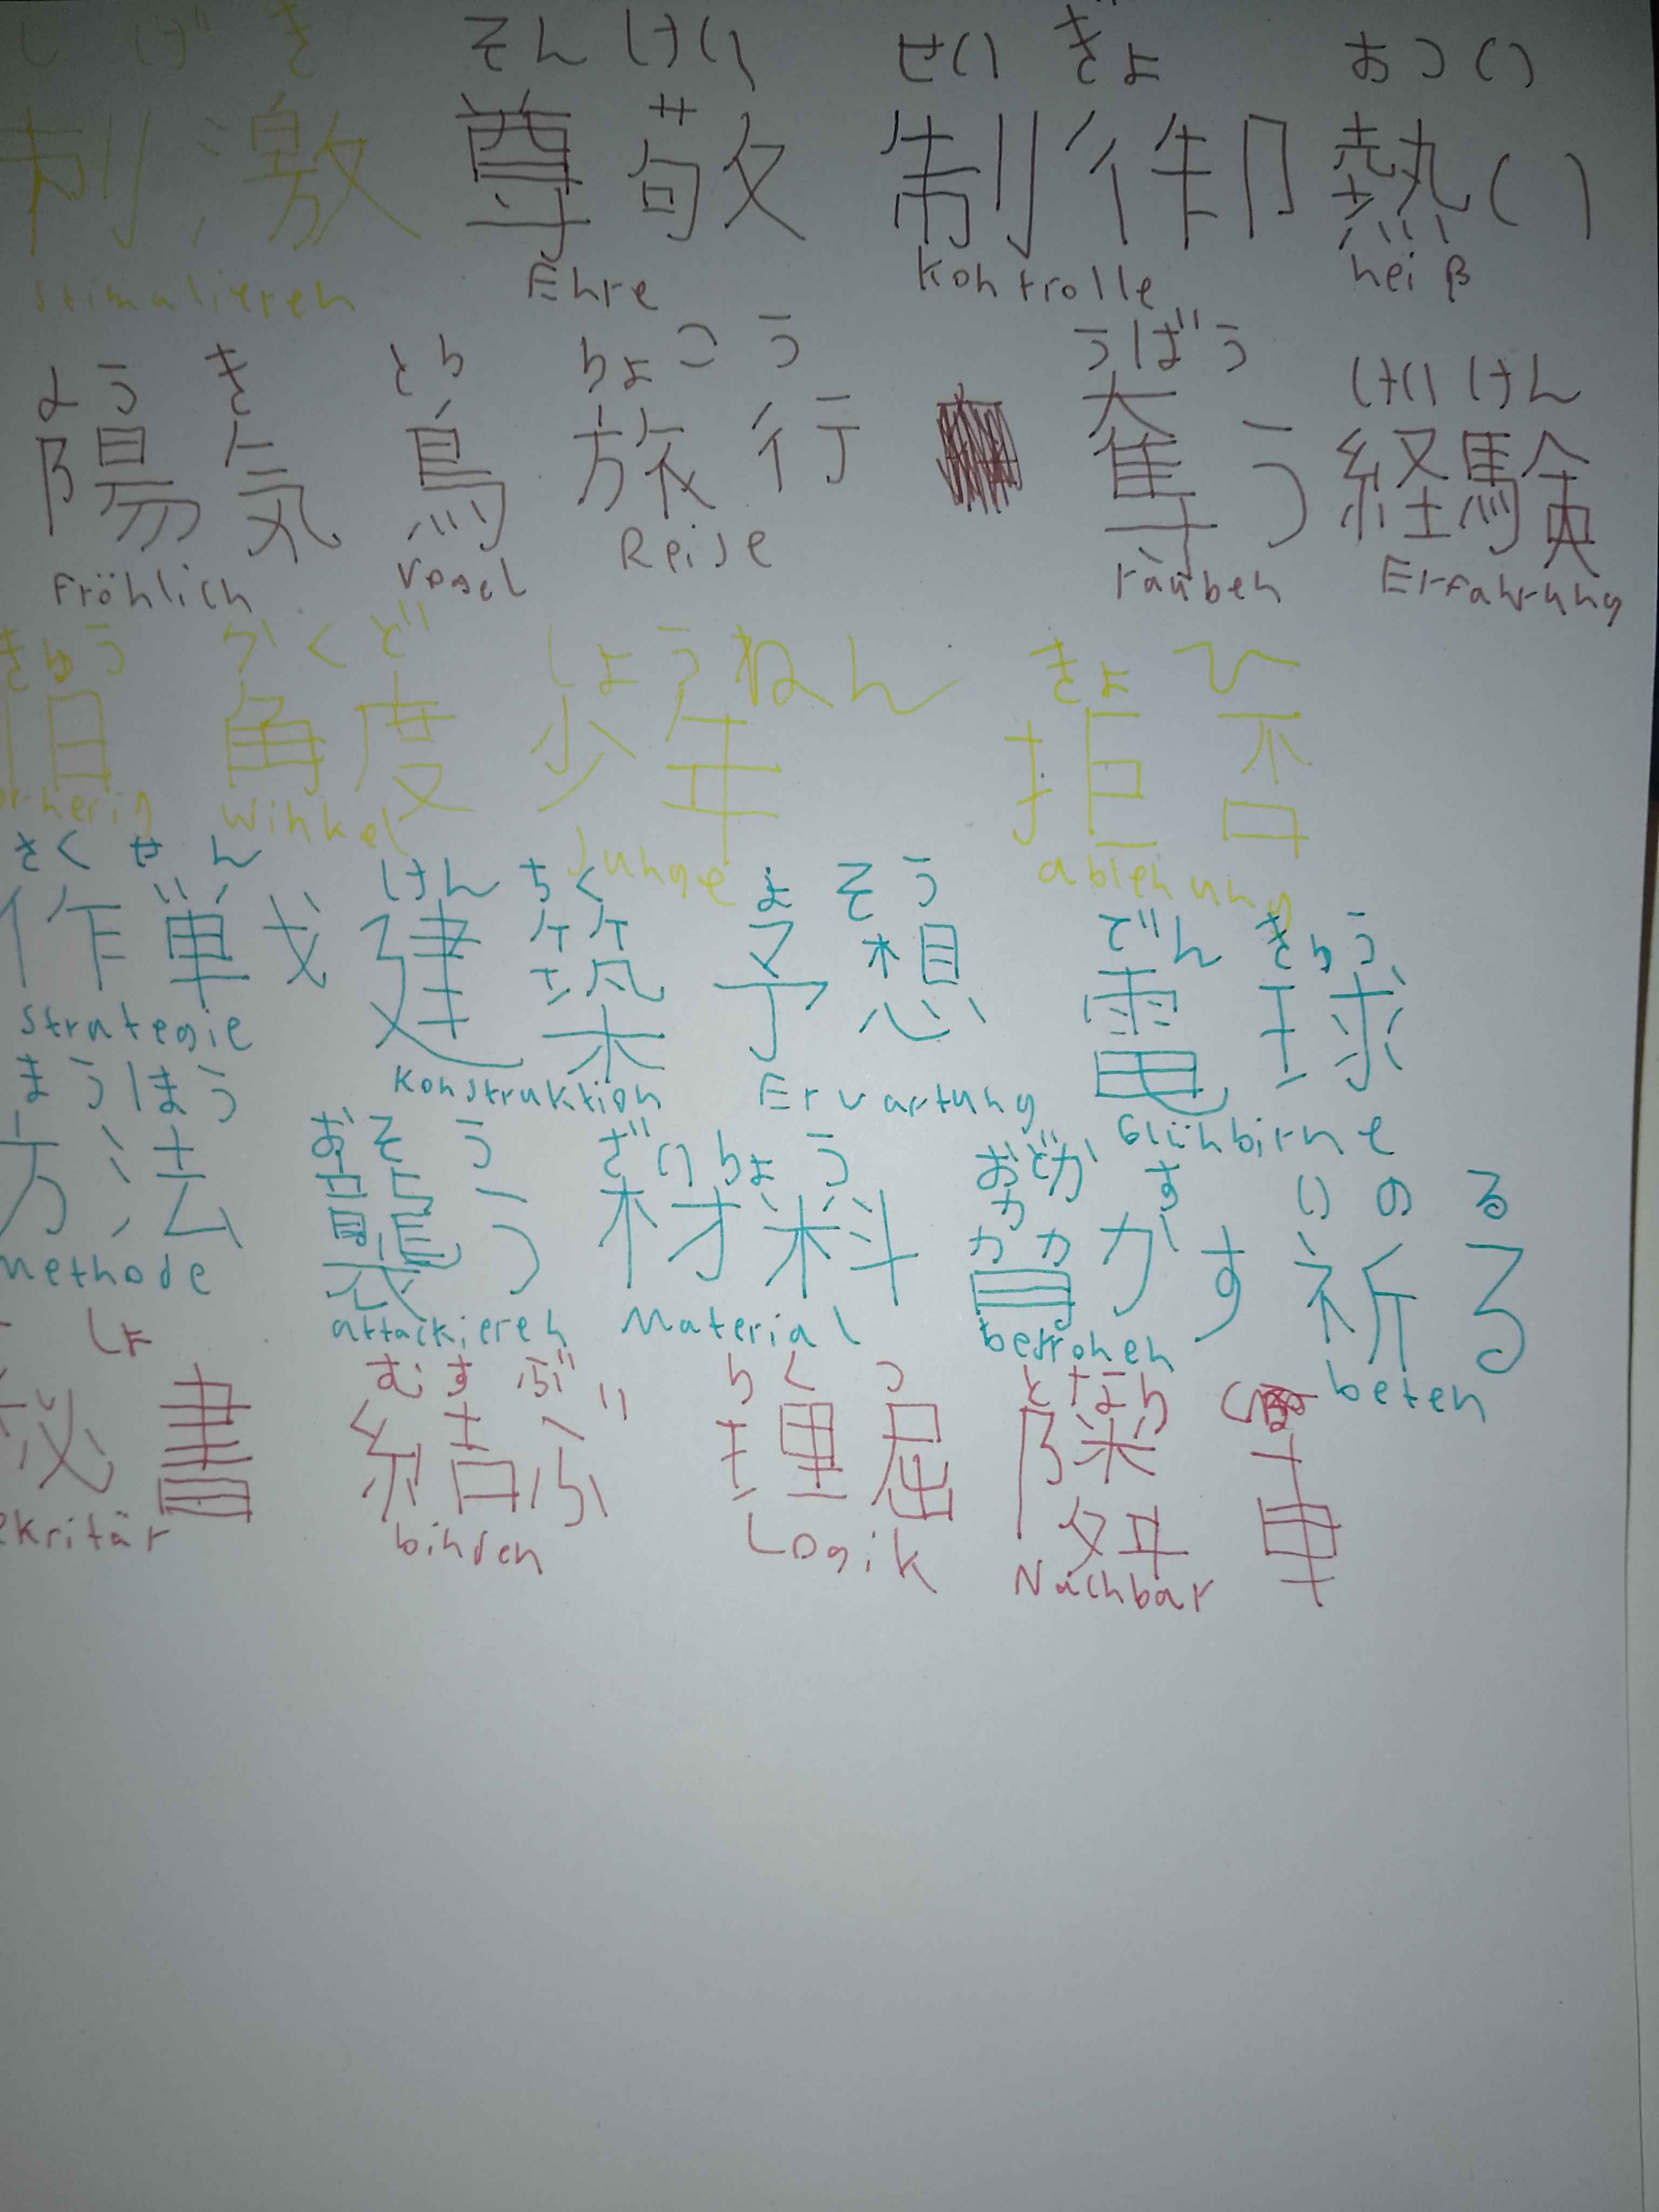 しげき そんけい せいぎょ おつい
刺激 尊敬 制御 熱い
stimulieren Ehre Kontrolle heiß
ようき とり りょこう うばう けいけん
陽気 鳥 旅行 奪う 経験
Fröhlich Vogel Reise räuben Erfahrung
きゅう かくど しょうねん きょひ
旧 角度 少年 拒否
orherig Winkel Junge ablehnung
さくせん けんちく よそう でんきゅう
作戦 建築 予想 電球
Strategie Konstruktion Ervartung Glühbirne
まうほう おそう ざいりょう おどかす いのる
方法 襲う 材料 脅かす 祈る
methode attackieren Material bedrohen beten
しょ むすぶ りくつ となり
秘書 結ぶ 理屈 隣 車
ekritär binden Logik Nachbar